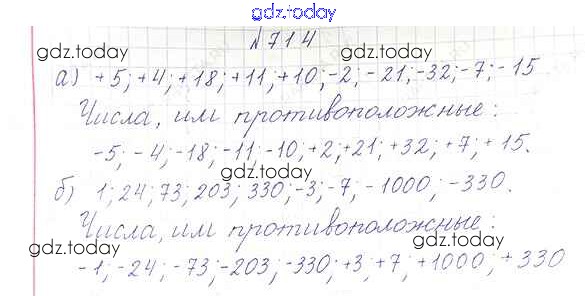 gdz.today
№ 714
gdz.today gdz.today
а) +5; +4; +18; +11; +10; -2; -21; -32; -7; -15
Числа, им противоположные:
gdz.today gdz.today
-5; -4; -18; -11; -10; +2; +21; +32; +7; +15.
gdz.today
б) 1; 24; 73; 203; 330; -3; -7; -1000; -330.
Числа, им противоположные:
gdz.today gdz.today
-1; -24; -73; -203; -330; +3; +7; +1000; +330
gdz.today